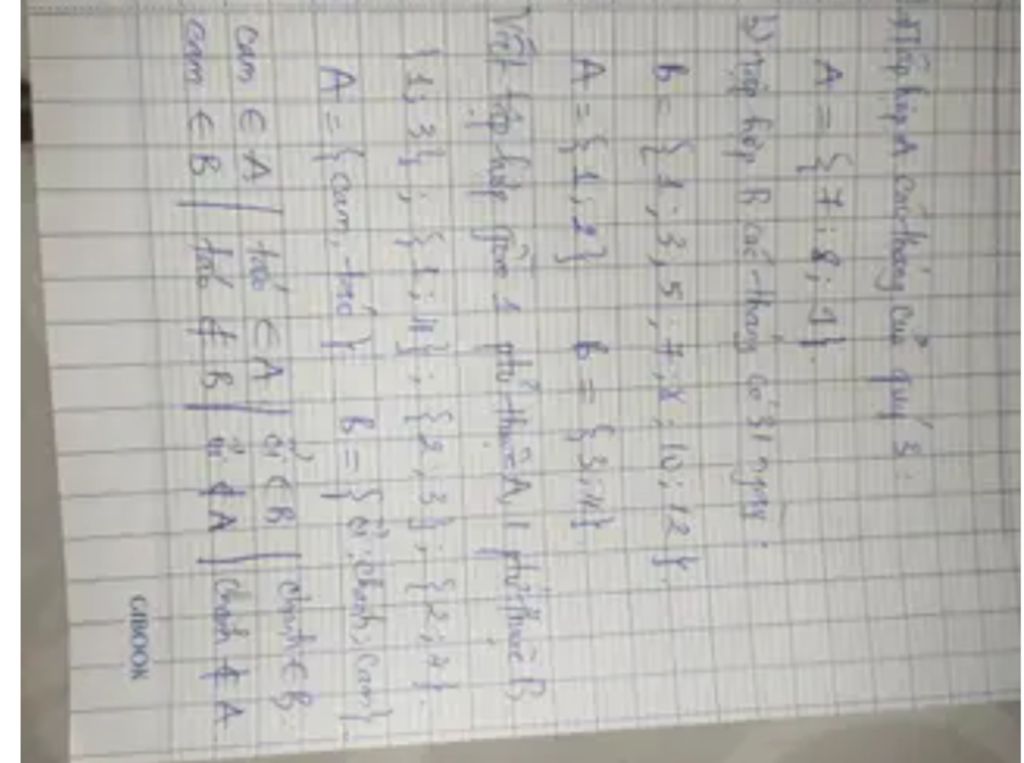 a) Tập hợp A các tháng của quý 3:
A = {7; 8; 9}.
b) Tập hợp B các tháng có 31 ngày:
B = {1; 3; 5; 7; 8; 10; 12}.
A = {1; 2} B = {3; 4}.
Viết tập hợp gồm 1 ptử thuộc A, 1 ptử thuộc B
{1; 3}; {1; 4}; {2; 3}; {2; 4}.
A = {cam, táo} B = {ổi; chanh; cam}.
cam ∈ A | táo ∈ A | ổi ∈ B | chanh ∈ B.
cam ∈ B | táo ∉ B | ổi ∉ A | chanh ∉ A
GIBOOK